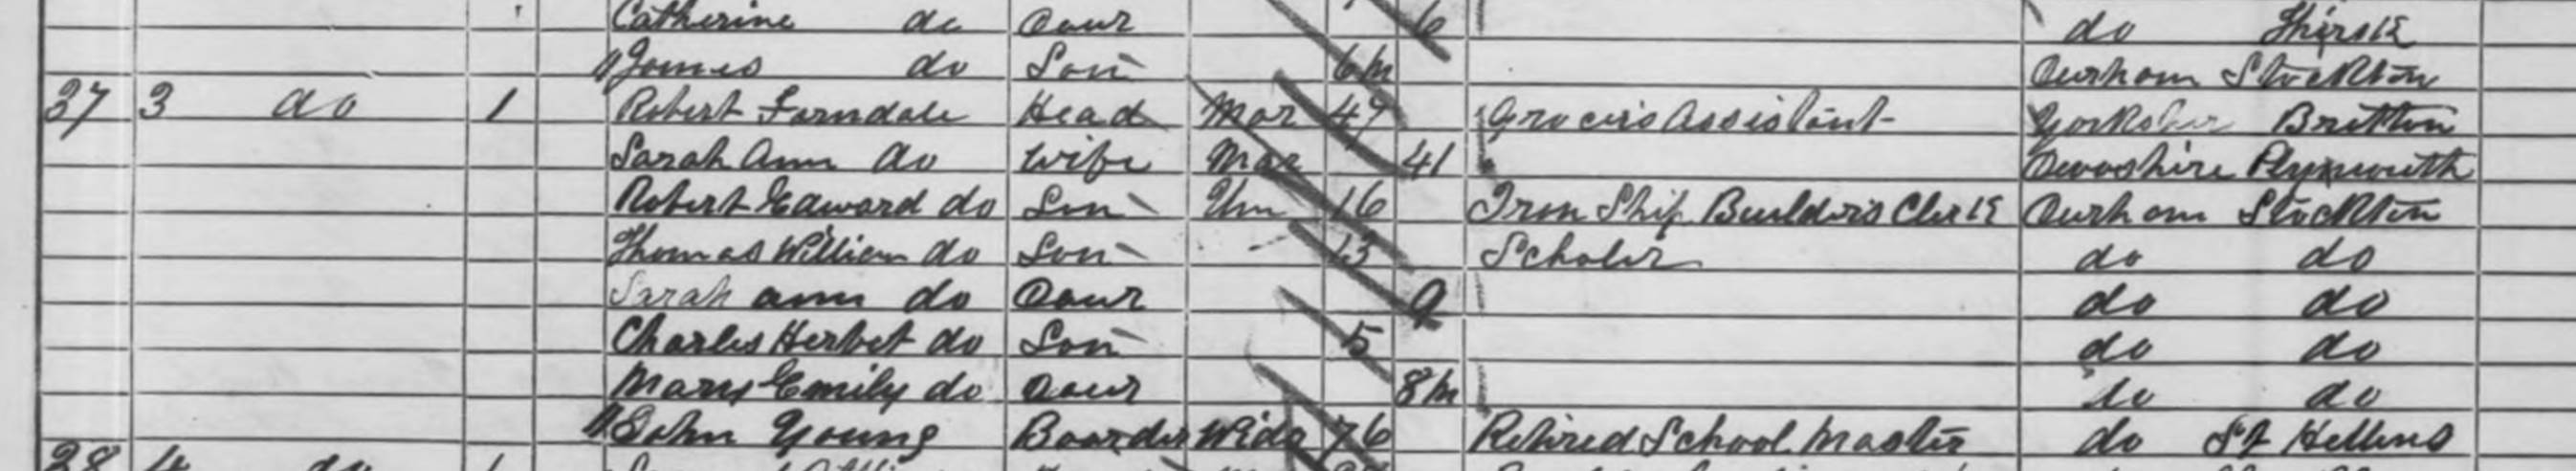 Catherine do Daur 6 do Thirsk
James do Son 6m Durham Stockton
37 3 do 1 Robert Farndale Head Mar 49 Grocers Assistant Yorksher Britton
Sarah Ann do Wife Mar 41 Devoshire Plymouth
Robert Edward do Son Un 16 Iron Ship Builders Clerk Durham Stockton
Thomas William do Son 13 Scholar do do
Sarah ann do Daur 9 do do
Charles Herbet do Son 5 do do
Mary Emily do Daur 8m do do
John Young Boarder Wido 76 Retired School Master do St Hellens
28 4 do 1